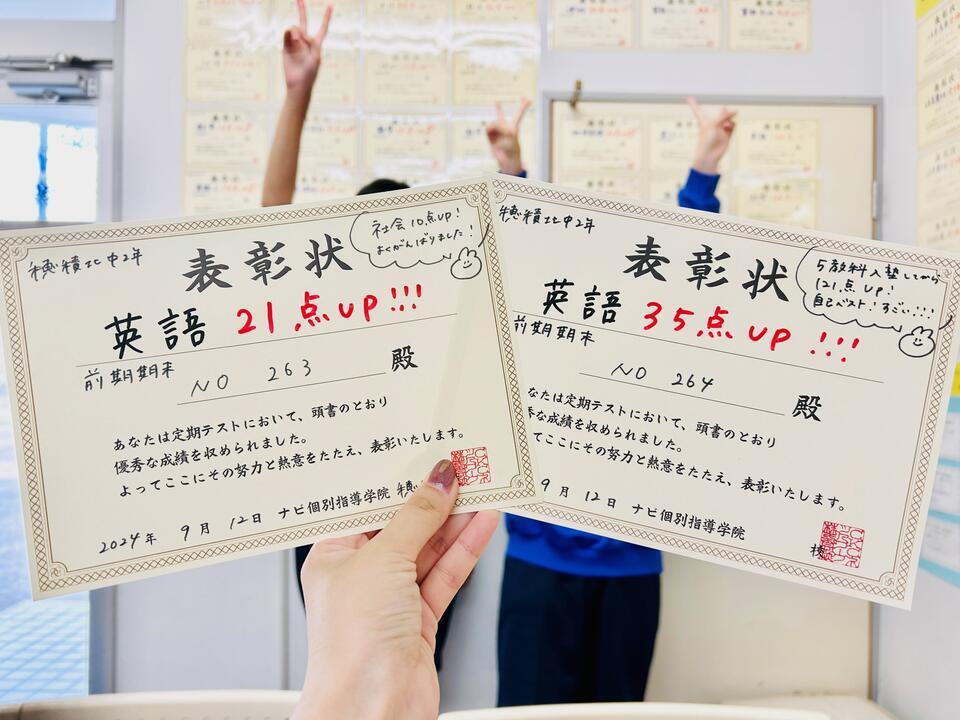 穂積北中2年
社会10点UP!
よくがんばりました!
表彰状
英語 21点UP!!!
前期期末
NO 263 殿
あなたは定期テストにおいて、頭書のとおり
優秀な成績を収められました。
よってここにその努力と熱意をたたえ、表彰いたします。
2024年 9月 12日 ナビ個別指導学院
穂積北中2年
5教科入塾してから
121点UP!
自己ベスト!すごい!!!
表彰状
英語 35点UP!!!
前期期末
NO 264 殿
なたは定期テストにおいて、頭書のとおり
秀な成績を収められました。
てここにその努力と熱意をたたえ、表彰いたします。
9月 12日 ナビ個別指導学院